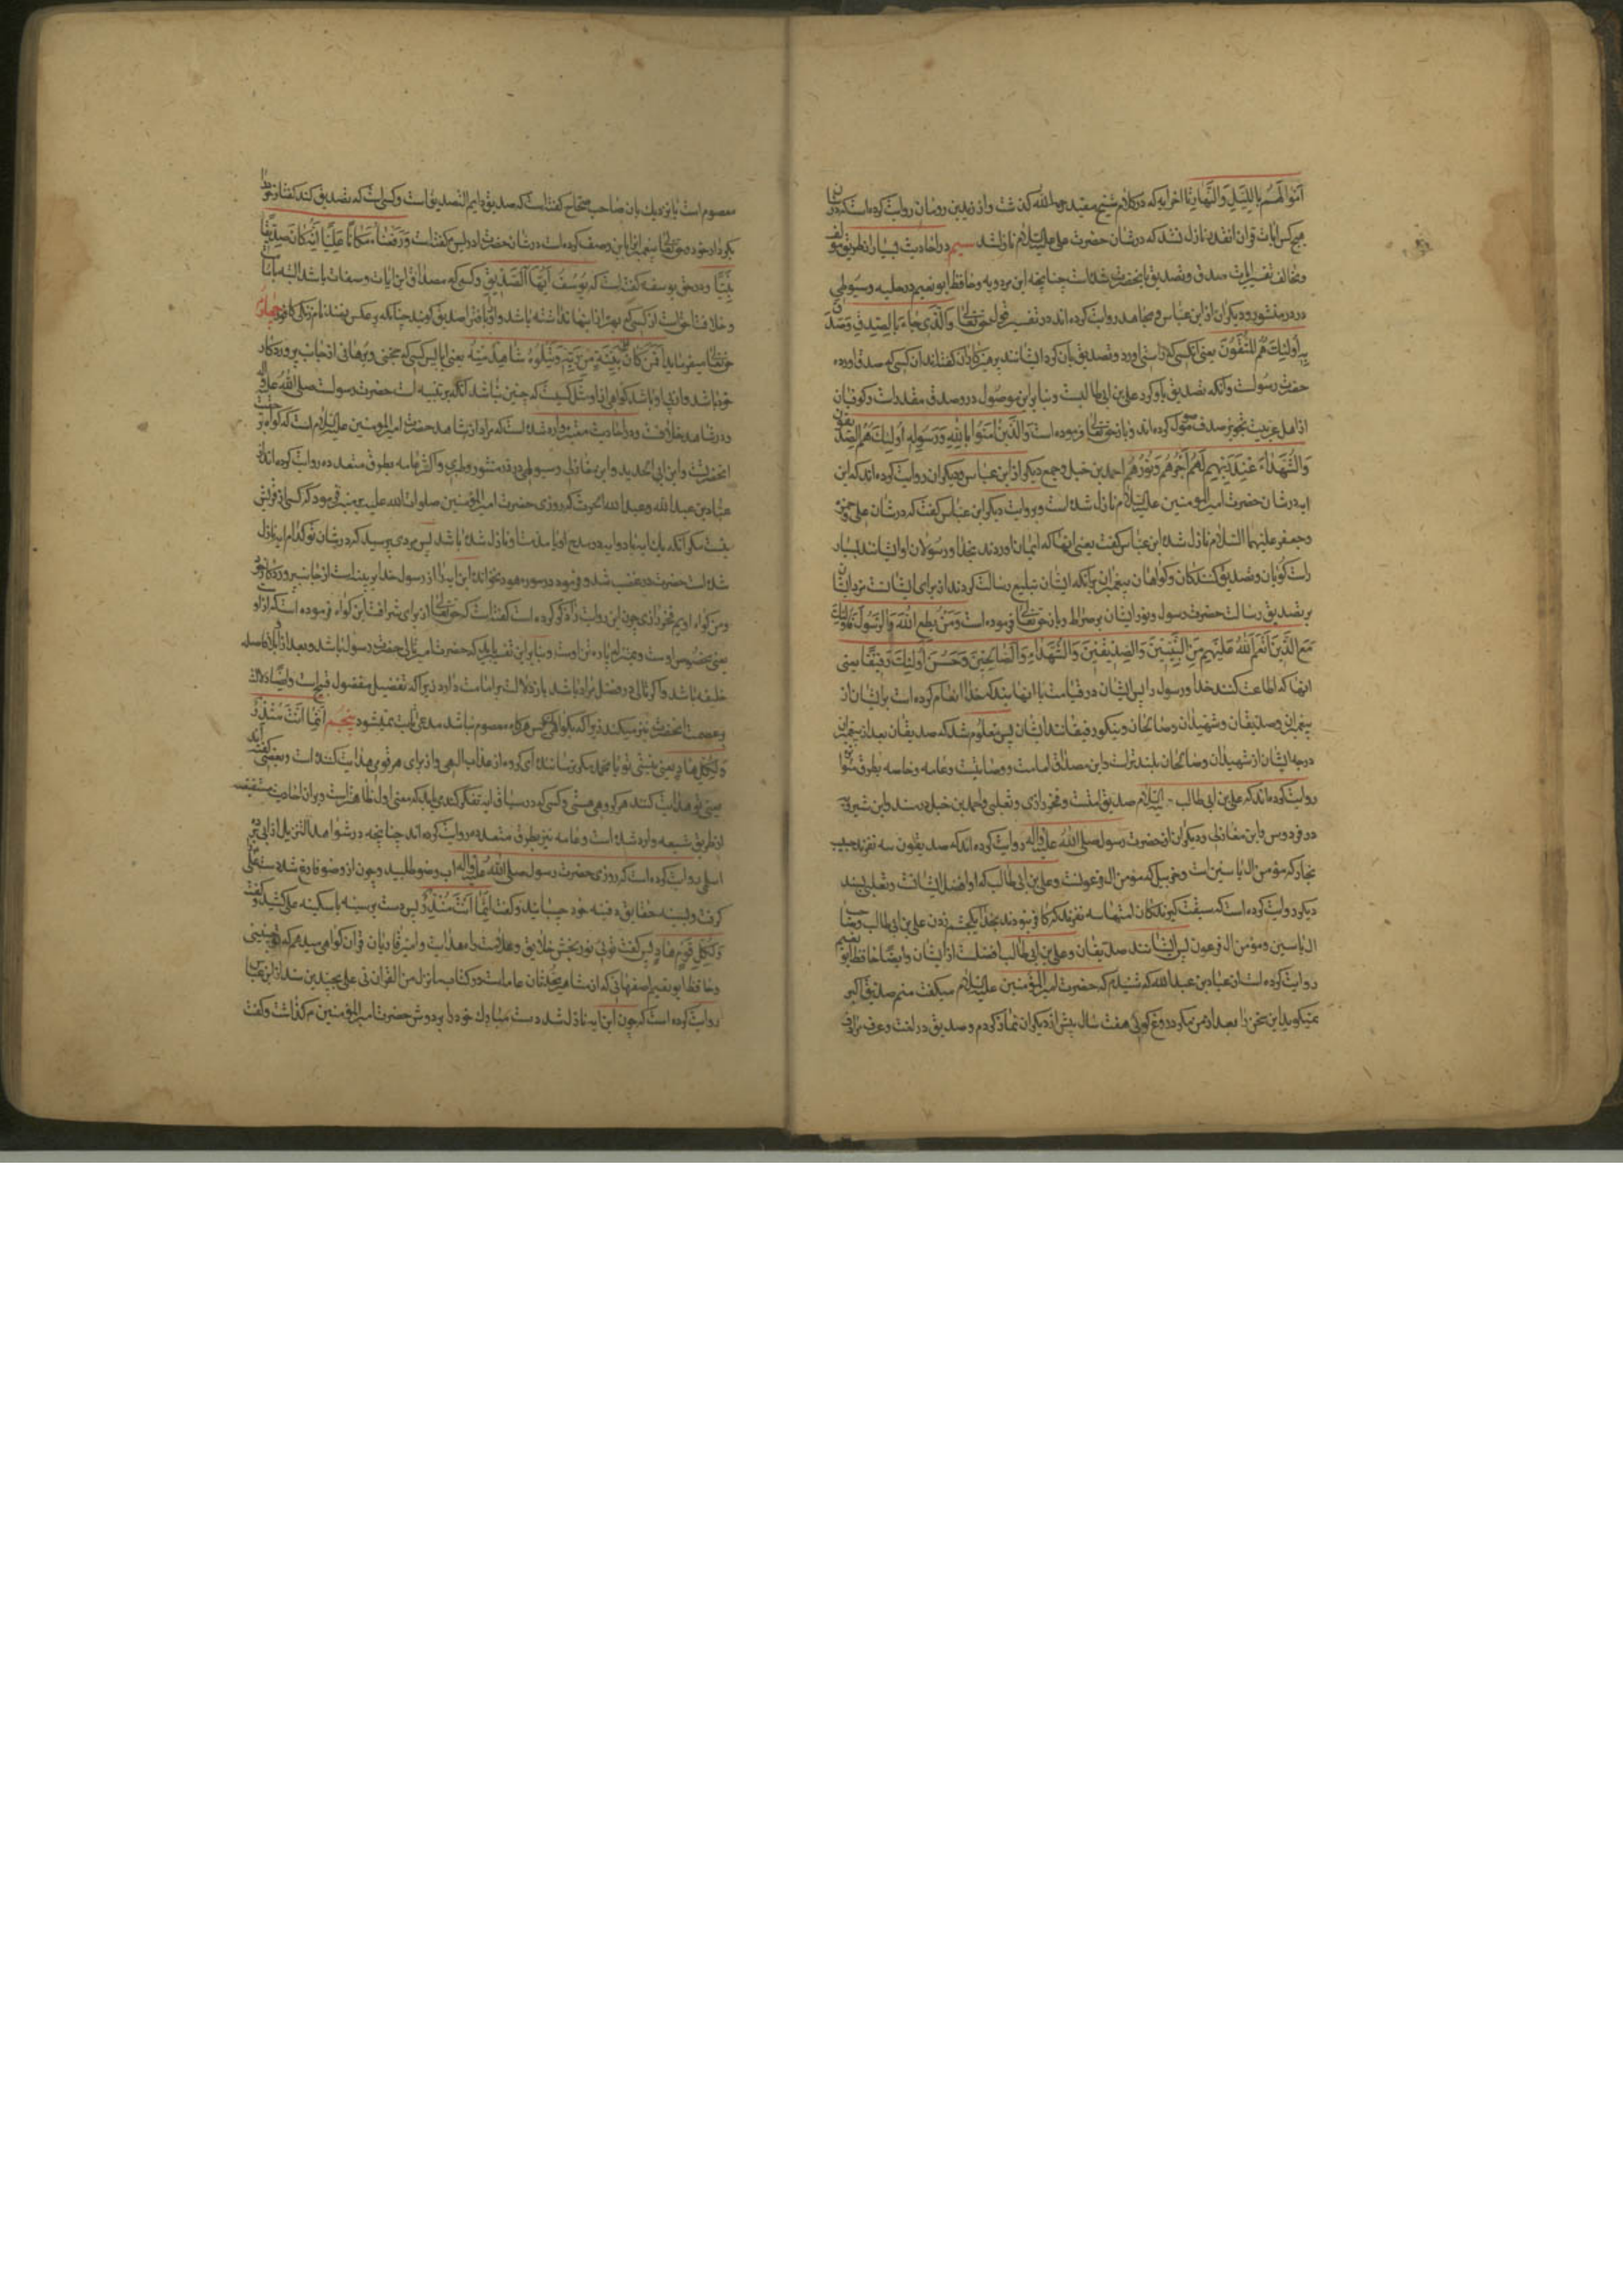 اموالهم بالليل والنهار تا اخر ایه که در کلام شیخ مفید رحمه الله گذشت و از یزید بن رومان روایت کرده است که در شان
هیچکس ایات قران انقدر نازل نشد که در شان حضرت علی علیه السلام نازل شد سیم در احادیث بسیار از طریق مؤلف
و مخالف تفسیر ایات صدق و تصدیق بانحضرت شده است چنانچه ابن مردویه و حافظ ابو نعیم در حلیه و سیوطی
در در منثور و دیگران از ابن عباس و مجاهد روایت کرده اند در تفسیر قول حق تعالی والذی جاء بالصدق وصدق
به اولئك هم المتقون یعنی انکسی که راستی اورد و تصدیق بان کرد ایشانند پرهیزکاران گفته اند ان کسی که صدق اورده
حضرت رسولست و آنکه تصدیق باو کرد علی بن ابی طالبست و بنابر این موصول در وصدق مقدر است و کوفیان
از اهل عربیت تجویز حذف موصول کرده اند و باز حق تعالی فرموده است والذین امنوا بالله ورسوله اولئك هم الصدیقون
والشهداء عند ربهم لهم اجرهم ونورهم احمد بن حنبل و جمع دیگر از ابن عباس و دیگران روایت کرده اند که این
ایه در شان حضرت امیر المؤمنین علیه السلام نازل شده است و بروایت دیگر ابن عباس گفت که در شان علی و حمزه
و جعفر علیهما السلام نازل شده ابن عباس گفت یعنی انها که ایمان اوردند بخدا و رسولان او ایشانند بسیار
راست گویان و تصدیق کنندگان و گواهان پیغمبران برآنکه ایشان تبلیغ رسالت کردند از برای ایشانست مزد ایشان
بر تصدیق رسالت حضرت رسول و نور ایشان بر صراط و باز حق تعالی فرموده است ومن یطع الله والرسول فاولئك
مع الذین انعم الله علیهم من النبیین والصدیقین والشهداء والصالحین وحسن اولئك رفیقا یعنی
انها که اطاعت کنند خدا و رسول را پس ایشان در قیامت با انهایند که خدا انعام کرده است بر ایشان از
پیغمبران و صدیقان و شهیدان و صالحان و نیکو رفیقانند ایشان پس معلوم شد که صدیقان بعد از پیغمبران
درجه ایشان از شهیدان و صالحان بلند تر است و این مصداق امامت و وصایتست و عامه و خاصه بطرق متواتره
روایت کرده اند که علی بن ابی طالب علیه السلام صدیق امتست و فخر رازی و ثعلبی و احمد بن حنبل در مسند و ابن شیرویه
در فردوس و ابن مغازلی و دیگران از حضرت رسول صلی الله علیه واله روایت کرده اند که صدیقون سه نفرند حبیب
نجار که مؤمن ال یاسین است و حزبیل که مؤمن ال فرعونست و علی بن ابی طالب که او افضل ایشانست و ثعلبی بسند
دیگر روایت کرده است که سبقت گیرندگان امتها سه نفرند که کافر نبودند بخدا یکچشم زدن علی بن ابی طالب و صاحب
ال یاسین و مؤمن ال فرعون پس ایشانند صدیقان و علی بن ابی طالب افضلست از ایشان و ایضا حافظ ابو نعیم
روایت کرده است از عباد بن عبد الله که شنیدم که حضرت امیر المؤمنین علیه السلام میگفت منم صدیق اکبر
نمیگوید این سخن را بعد از من مگر دروغ گوئی هفت سال پیش از دیگران نماز کردم و صدیق در لغت و عرف مرادف
معصوم است یا نزدیك بان صاحب صحاح گفته است که صدیق دایم التصدیق است و کسیست که تصدیق کند گفتار خود را
بکردار خود و حق تعالی پیغمبران را باین وصف کرده است در شان حضرت ادریس گفته است ورفعناه مکانا علیا انه کان صدیقا
نبیا و در حق یوسف گفته است که یوسف ایها الصدیق و کسی که مصداق این ایات و صفات باشد البته بامامت
و خلافت احقست از کسی که بهره از اینها نداشته باشد و او را بافترا صدیق گویند چنانکه بر عکس نهند نام زنگی کافور چهارم
حق تعالی میفرماید افمن کان علی بینة من ربه ویتلوه شاهد منه یعنی ایا پس کسی که بر حجتی و برهانی از جانب پروردگار
خود باشد و از پی او باشد گواهی از او مثل کسیست که چنین نباشد آنکه بر بینه است حضرت رسولست صلی الله علیه واله
و در شاهد خلافست و در احادیث معتبره وارد شده است که مراد از شاهد حضرت امیر المؤمنین علیه السلام است که گواه حقیت
انحضرتست و ابن ابی الحدید و ابن مغازلی و سیوطی در در منثور و طبری و اکثر عامه بطرق متعدده روایت کرده اند از
عباد بن عبد الله و عبد الله الحرث که روزی حضرت امیر المؤمنین صلوات الله علیه بر منبر فرمود که کسی از قریش
نیست مگر انکه یك ایه یا دو ایه در مدح او یا مذمت او نازل شده باشد پس مردی پرسید که در شان تو کدام ایه نازل
شده است حضرت در غضب شد و فرمود در سوره هود نخوانده این ایه را رسول خدا بر بینه است از جانب پروردگار خود
و من گواه اویم فخر رازی چون این روایت را ذکر کرده است گفته است که حق تعالی از برای شرافت این گواه فرموده است که از او
یعنی مخصوص اوست و بمنزله پاره تن اوست و بنابر این تفسیر باید که حضرت امیر تالی حضرت رسول باشد و بعد از او بلا فاصله
خلیفه باشد و اگر تالی در فضل مراد باشد باز دلالت بر امامت دارد زیرا که تفضیل مفضول قبیح است و ایضا دلالت
بر عصمت انحضرت نیز میکند زیرا که بگواهی یکس هرگاه معصوم نباشد مدعی ثابت نمیشود پنجم انما انت منذر
ولکل قوم هاد یعنی نیستی تو یا محمد مگر ترساننده ای گروه از عذاب الهی و از برای هر قومی هدایت کننده است و بعضی گفته اند
یعنی تو هدایت کننده هر گروهی هستی و کسی که در سیاق ایه تفکر کند میداند که معنی اول ظاهر تر است و بر ان احادیث مستفیضه
از طریق شیعه وارد شده است و عامه نیز بطرق متعدده روایت کرده اند چنانچه در شواهد التنزیل از ابی برده
اسلمی روایت کرده است که روزی حضرت رسول صلی الله علیه واله اب وضو طلبید و چون از وضو فارغ شد دست علی
گرفت و بسینه حقایق دفینه خود چسبانید و گفت انما انت منذر پس دست بر سینه با سکینه علی کشید و گفت
ولکل قوم هاد پس گفت توئی نور بخش خلایق و علامت راه هدایت و امیر قاریان قران گواهی میدهم که تو چنینی
و حافظ ابو نعیم اصفهانی که از مشاهیر محدثان عامه است در کتاب ما نزل من القران فی علی بچندین سند از ابن عباس
روایت کرده است که چون این ایه نازل شد دست مبارك خود را بر دوش حضرت امیر المؤمنین م گذاشت و گفت